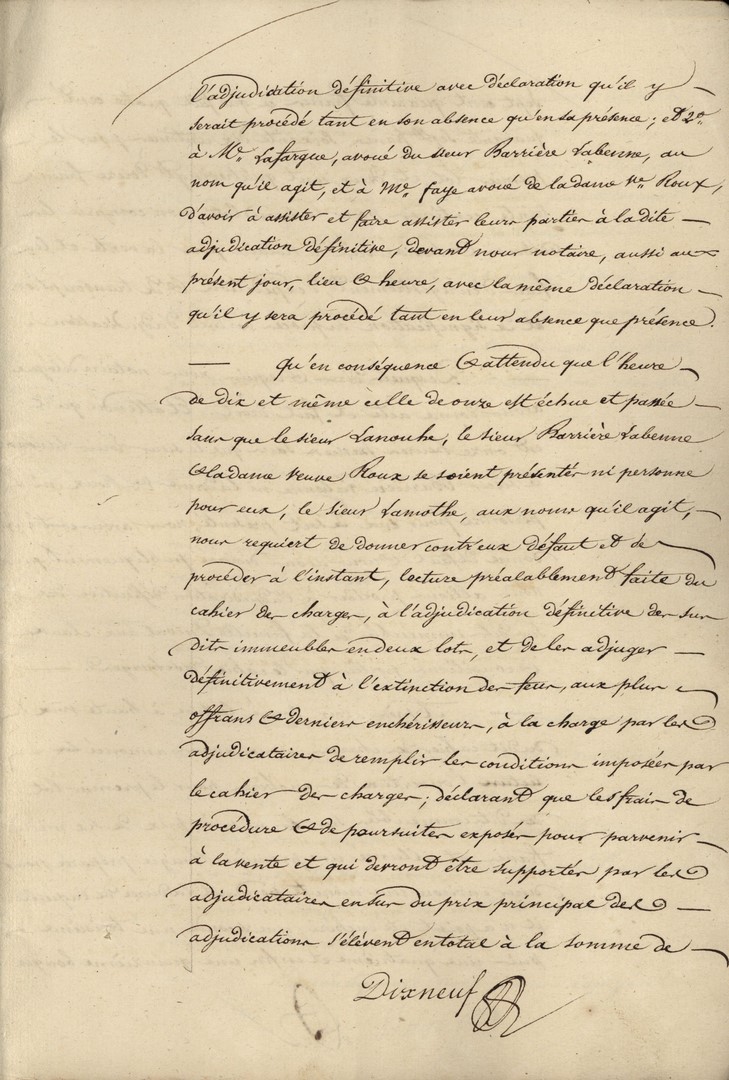 l'adjudication définitive avec déclaration qu'il y
serait procédé tant en son absence qu'en sa présence ; et 2°
à Me. Lafargue, avoué du sieur Barrière Labenne, au
nom qu'il agit, et à Me. faye avoué de la dame Ve. Roux,
d'avoir à assister et faire assister leurs parties à la dite
adjudication définitive, devant nous notaire, aussi aux
présent jour, lieu & heure, avec la même déclaration
qu'il y sera procédé tant en leur absence que présence.
— qu'en conséquence & attendu que l'heure
de dix et même celle de onze est échue et passée
sans que le sieur Lanouhe, le sieur Barrière Labenne
& la dame veuve Roux se soient présentés ni personne
pour eux, le sieur Lamothe, aux noms qu'il agit,
nous requiert de donner contr'eux défaut et de
procéder à l'instant, lecture préalablement faite du
cahier des charges, à l'adjudication définitive des sus
dits immeubles en deux lots, et de les adjuger
définitivement à l'extinction des feux, aux plus
offrans & derniers enchérisseurs, à la charge par les
adjudicataires de remplir les conditions imposées par
le cahier des charges ; déclarant que les frais de
procédure & de poursuites exposés pour parvenir
à la vente et qui devront être supportés par les
adjudicataires en sus du prix principal des
adjudications s'élèvent en total à la somme de
Dixneuf